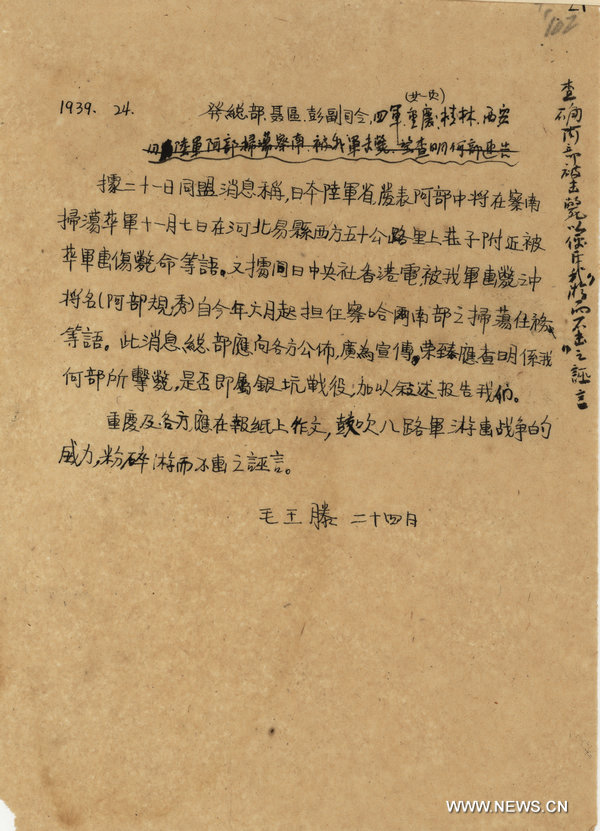 1939. 24.
發總部、聶區、彭副司令、四軍、重慶、桂林、西安
據二十一日同盟消息稱,日本陸軍省發表阿部中將在察南
掃蕩華軍十一月七日在河北易縣西方五十公路里上莊子附近被
華軍擊傷斃命等語。又據同日中央社香港電被我軍擊斃之中
將名(阿部規秀)自今年六月起担任察哈爾南部之掃蕩任務
等語。此消息總部應向各方公佈,廣為宣傳。榮臻應查明係我
何部所擊斃,是否即屬銀坑戰役,加以叙述报告我们。
重慶及各方應在報紙上作文,鼓吹八路軍游擊战争的
威力,粉碎游而不擊之誣言。
毛 王 滕 二十四日
查確阿部被击斃以
游而不击之誣言
WWW.NEWS.CN